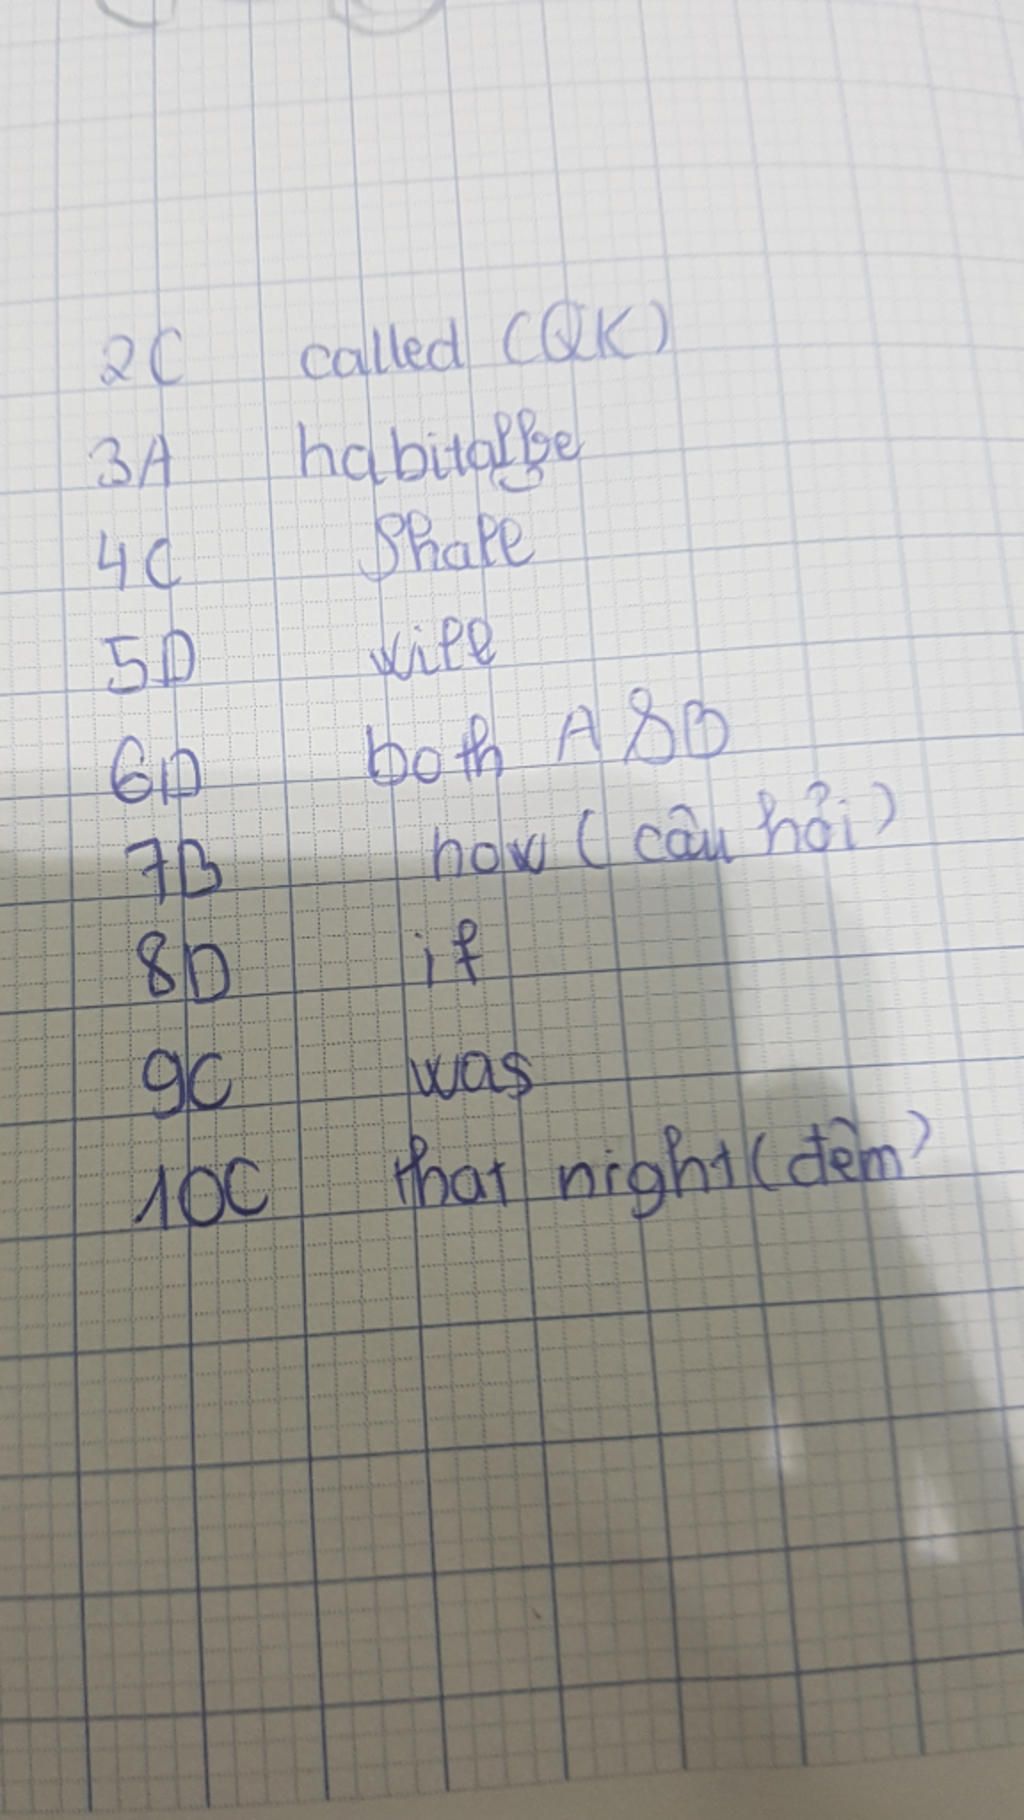 2C called (QK)
3A habitable
4C Shape
5D wife
6D both A & B
7B how (câu hỏi)
8D if
9C was
10C that night (đêm)